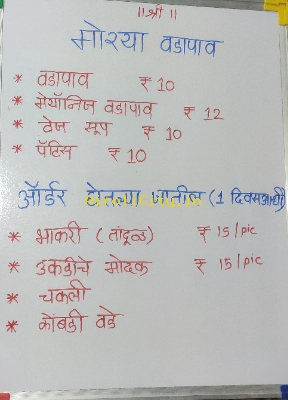 ॥श्री॥
मोरया वडापाव
* वडापाव ₹ 10
* मेयॉनिज वडापाव ₹ 12
* वेज सूप ₹ 10
* पॅटिस ₹ 10
ऑर्डर घेतल्या जातील (1 दिवसआधी)
* भाकरी (तांदूळ) ₹ 15/pic
* उकडीचे मोदक ₹ 15/pic
* चकली
* कोंबडी वडे